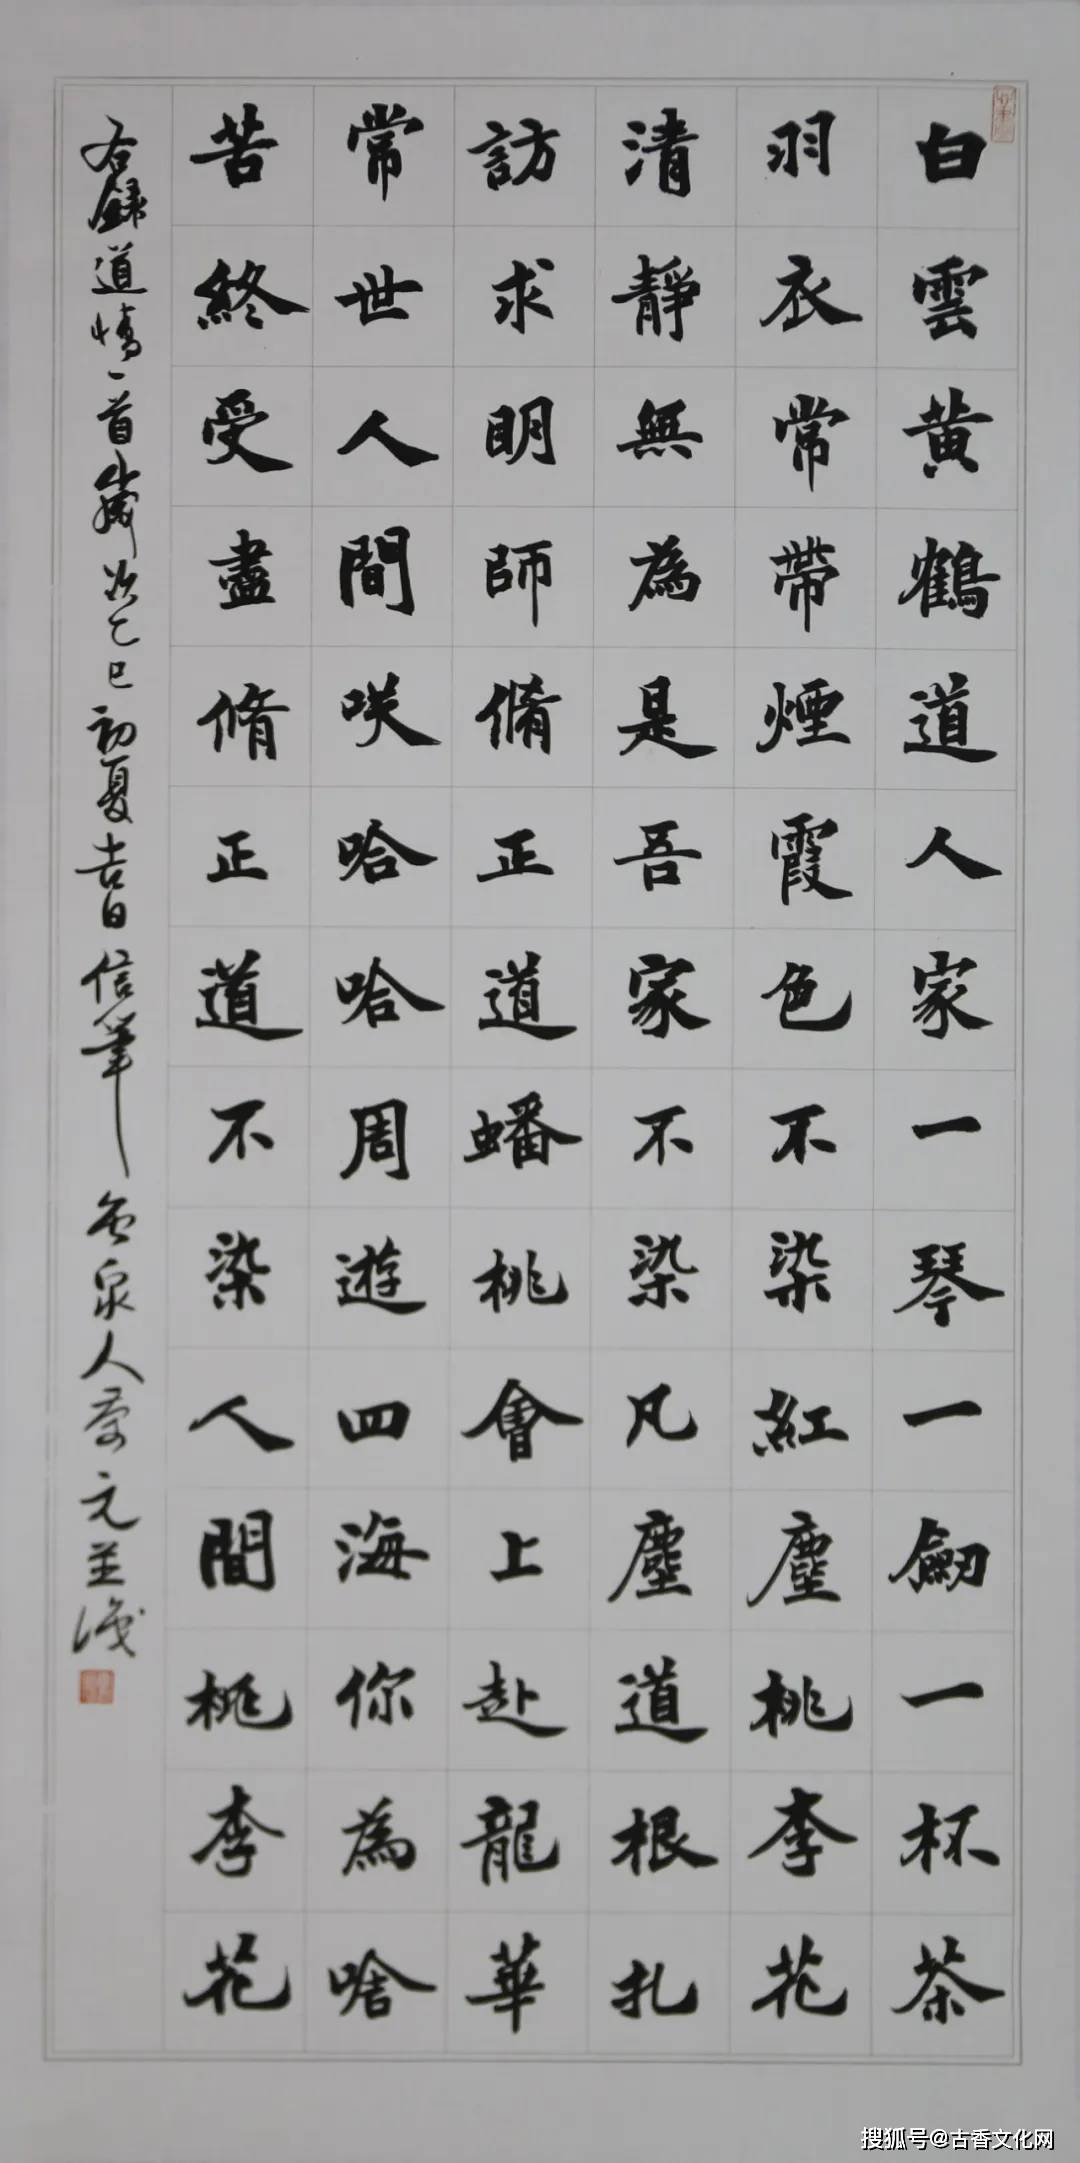 白雲黄鶴道人家一琴一劒一杯茶
羽衣常帶煙霞色不染紅塵桃李花
清靜無為是吾家不染凡塵道根扎
訪求明師脩正道蟠桃會上赴龍華
常世人間咲哈哈周遊四海你為啥
苦終受盡脩正道不染人間桃李花
右錄道情一首歲次乙巳初夏吉日信筆泉人文並識
搜狐号@古香文化网